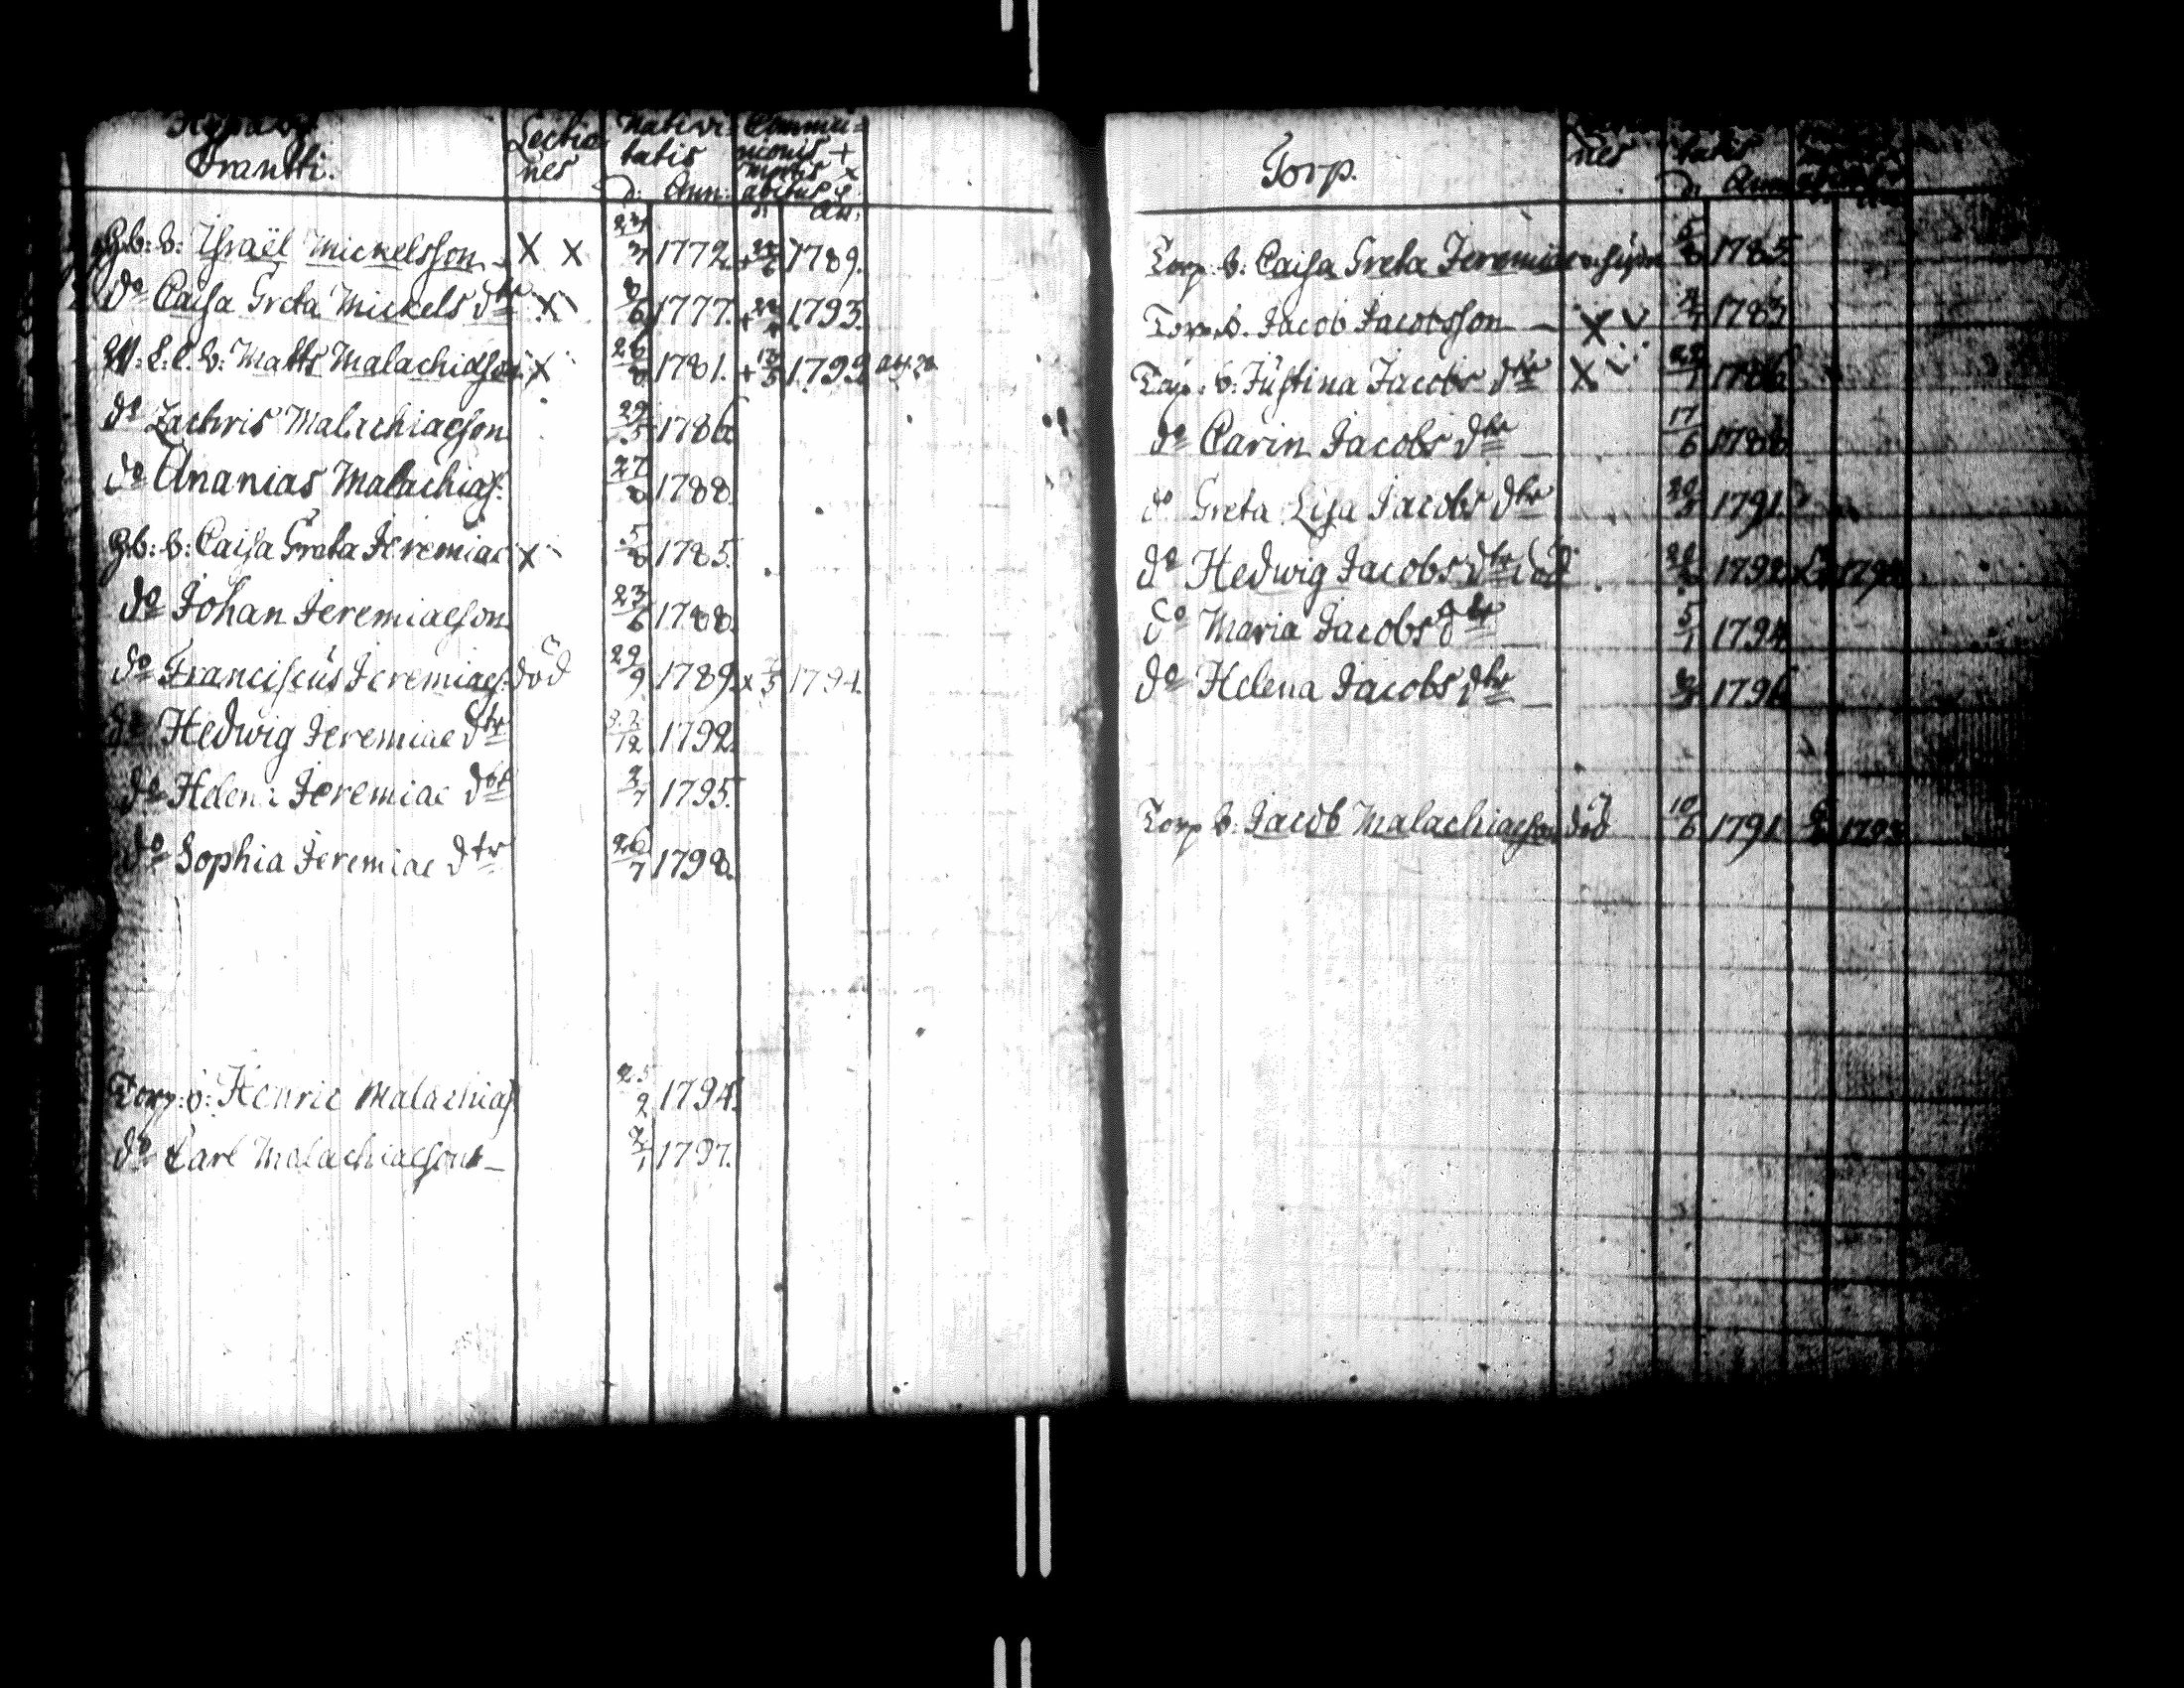 Frantti.
Lectio
nes
Nativi
tatis
d: Ann:
Commu=
nionis +
mortis x
abitus
d: An:
Gb: b: Israël Mickelsson X X 23/3 1772. + 1789.
do Caisa Greta Mickels dtr X 8/6 1777. + 1793.
b: Matts Malachiæson X 26/8 1781. + 1799.
do Zachris Malachiæson 29/5 1786.
do Ananias Malachiæs: 27/8 1788.
Gb: b: Caisa Greta Jeremiae X 5/8 1785.
do Johan Jeremiæson 23/6 1788.
do Franciscus Jeremiæs: död 29/9 1789. x 1794.
do Hedwig Jeremiae dtr /12 1792.
do Helena Jeremiae dtr 2/7 1795.
do Sophia Jeremiae dtr 26/7 1798.
Torp: b: Henric Malachiæs 25/2 1794.
do Carl Malachiæson 1797.
Torp.
nes
tatis
d: Ann
Torp: b: Caisa Greta Jeremiae 5/8 1785.
Torp. b. Jacob Jacobsson X 1783
Torp: b: Justina Jacobs dtr X 1786
do Carin Jacobs dtr 17/6 1788
do Greta Lisa Jacobs dtr 1791.
do Hedwig Jacobs dtr död 1792
do Maria Jacobs dtr 5/1 1794
do Helena Jacobs dtr 1796
Torp b: Jacob Malachiæson död 10/6 1791 1793